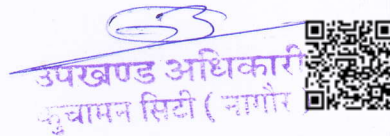 उपखण्ड अधिकारी
कुचामन सिटी ( नागौर